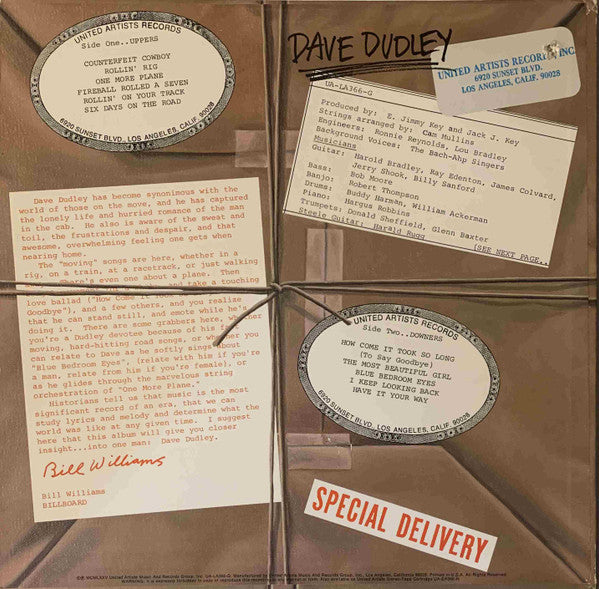 UNITED ARTISTS RECORDS
Side One..UPPERS
COUNTERFEIT COWBOY
ROLLIN' RIG
ONE MORE PLANE
FIREBALL ROLLED A SEVEN
ROLLIN' ON YOUR TRACK
SIX DAYS ON THE ROAD
6920 SUNSET BLVD. LOS ANGELES, CALIF. 90028
DAVE DUDLEY
UNITED ARTISTS RECORDS, INC.
6920 SUNSET BLVD.
LOS ANGELES, CALIF. 90028
UA-LA366-G
Produced by: E. Jimmy Key and Jack J. Key
Strings arranged by: Cam Mullins
Engineers: Ronnie Reynolds, Lou Bradley
Background Voices: The Bach-Ahp Singers
Musicians
Guitar: Harold Bradley, Ray Edenton, James Colvard,
Jerry Shook, Billy Sanford
Bass: Bob Moore
Banjo: Robert Thompson
Drums: Buddy Harman, William Ackerman
Piano: Hargus Robbins
Trumpets: Donald Sheffield, Glenn Baxter
Steele Guitar: Harald Rugg
(SEE NEXT PAGE..
Dave Dudley has become synonimous with the
world of those on the move, and he has captured
the lonely life and hurried romance of the man
in the cab. He also is aware of the sweat and
toil, the frustrations and despair, and that
awesome, overwhelming feeling one gets when
nearing home.
The "moving" songs are here, whether in a
rig, on a train, at a racetrack, or just walking
There's even one about a plane. Then
and take a touching
love ballad ("How Come It
Goodbye"), and a few others, and you realise
that he can stand still, and emote while he's
doing it. There are some grabbers here, whether
you're a Dudley devotee because of his fast
moving, hard-hitting road songs, or whether you
can relate to Dave as he softly sings about
"Blue Bedroom Eyes", (relate with him if you're
a man, relate from him if you're female), or
as he glides through the marvelous string
orchestration of "One More Plane."
Historians tell us that music is the most
significant record of an era, that we can
study lyrics and melody and determine what the
world was like at any given time. I suggest
here that this album will give you closer
insight...into one man: Dave Dudley.
Bill Williams
Bill Williams
BILLBOARD
UNITED ARTISTS RECORDS
Side Two..DOWNERS
HOW COME IT TOOK SO LONG
(To Say Goodbye)
THE MOST BEAUTIFUL GIRL
BLUE BEDROOM EYES
I KEEP LOOKING BACK
HAVE IT YOUR WAY
6920 SUNSET BLVD. LOS ANGELES, CALIF 90028
SPECIAL DELIVERY